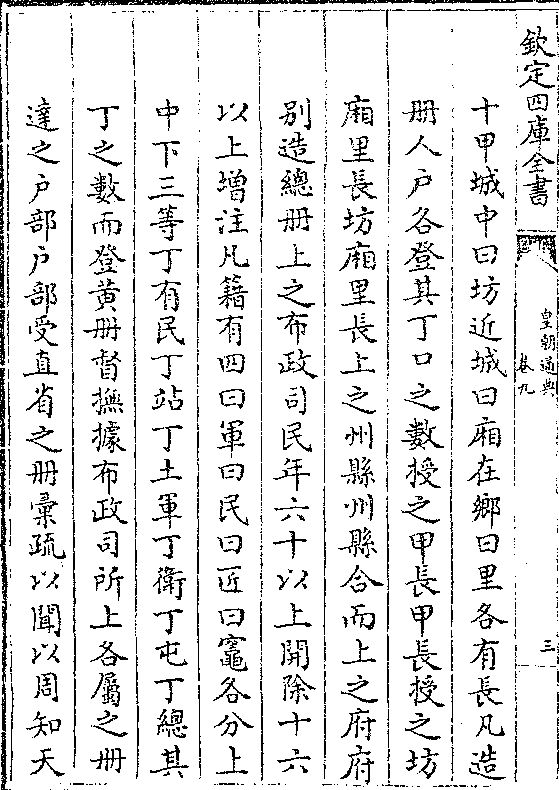 欽定四庫全書
皇朝通典
卷九
三
十甲城中曰坊近城曰廂在鄉曰里各有長凡造
册人户各登其丁口之數授之甲長甲長授之坊
廂里長坊廂里長上之州縣州縣合而上之府府
别造總册上之布政司民年六十以上開除十六
以上增注凡籍有四曰軍曰民曰匠曰竈各分上
中下三等丁有民丁站丁土軍丁衛丁屯丁總其
丁之數而登黄册督撫據布政司所上各屬之册
達之户部户部受直省之册彙疏以聞以周知天